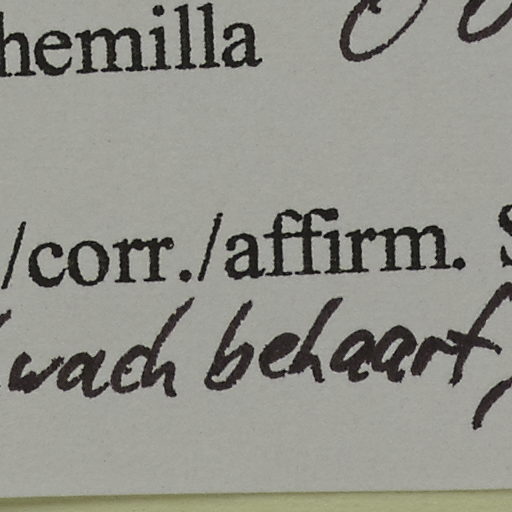 hemilla
/corr./affirm. S
wach behaart,